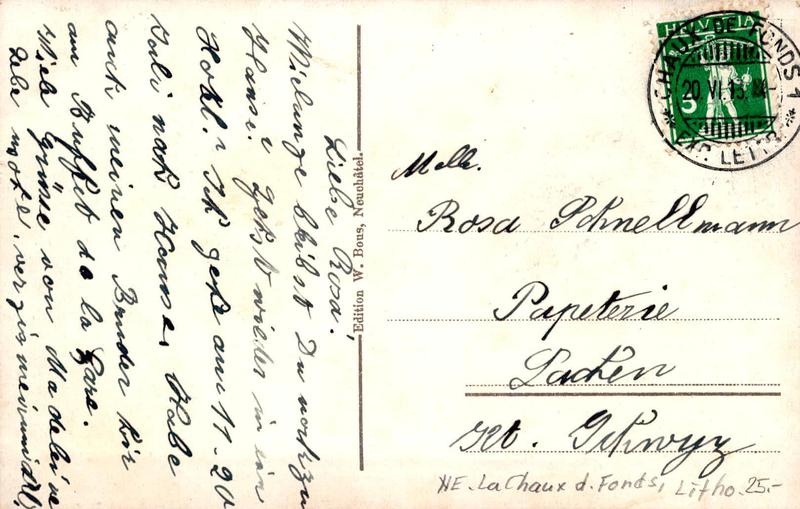 Liebe Rosa!
Wielange bleibst Du noch zu
Hause? gehst wieder in ein
Hotel. Ich gehe am 11-20
Juli nach Hause, Habe
auch meinen Bruder hir
am Buffet de la Gare.
Viele Grüsse von Madeleine
Lebe wohl, vergissmeinnicht,
Edition W. Bous, Neuchâtel.
HELVETIA
5
CHAUX-DE-FONDS 1
20.VI.13.
EXP. LETTR.
Melle.
Rosa Schnellmann
Papeterie
Lachen
Kt. Schwyz
NE. La Chaux d. Fonds, Litho. 25.-